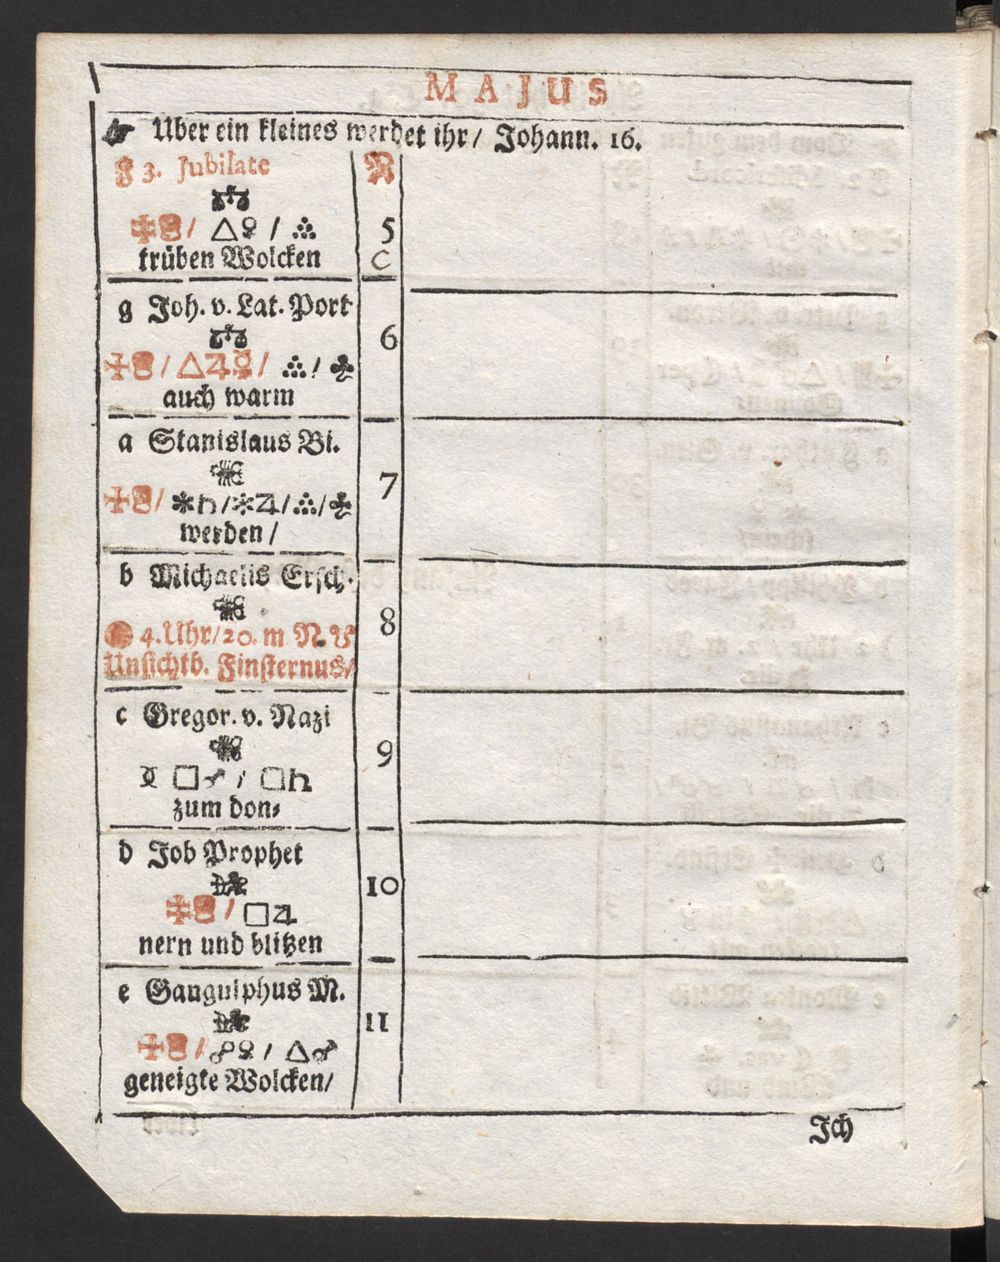 MAJUS
☞ Uber ein kleines werdet ihr / Johann. 16.
F 3. Jubilate R
♎
✠ / △♀ / ∴ 5
trüben Wolcken C
g Joh. v. Lat. Port
♎ 6
✠ / △♃☿ / ∴ / ♣
auch warm
a Stanislaus Bi.
♏ 7
✠ / ✱♄ / ✱♃ / ∴ / ♣
werden /
b Michaelis Ersch.
♏ 8
● 4. Uhr / 20. m N. V
Unsichtb. Finsternus /
c Gregor. v. Nazi
♏ 9
□♂ / □♄
zum don⸗
d Job Prophet
♐ 10
✠ / □♃
nern und blitzen
e Gangulphus M.
♐ 11
✠ / ☍♀ / △♂
geneigte Wolcken /
Ich